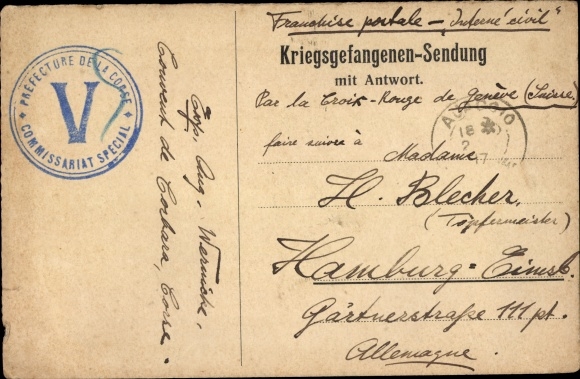 Franchise postale - "Interné civil"
Kriegsgefangenen-Sendung
mit Antwort.
Par la Croix-Rouge de Genève (Suisse)
faire suivre à
Madame
H. Blecher,
(Töpfermeister)
Hamburg-Eimsb.
Gärtnerstraße 111 pt.
Allemagne.
PRÉFECTURE DE LA CORSE
V
COMMISSARIAT SPÉCIAL
AJACCIO
18
2
17
Exp. Aug. Wernicke,
Couvent de Corbara, Corse.